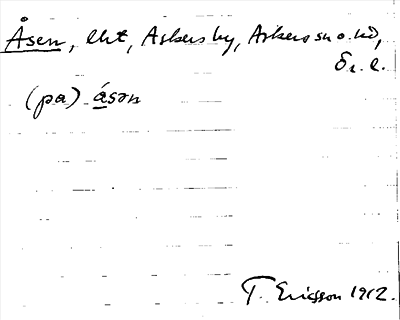 Åsen, lht, Askersby, Askers sn o. hd,
Ör. l.
(pa) åsən
T. Ericsson 1912.